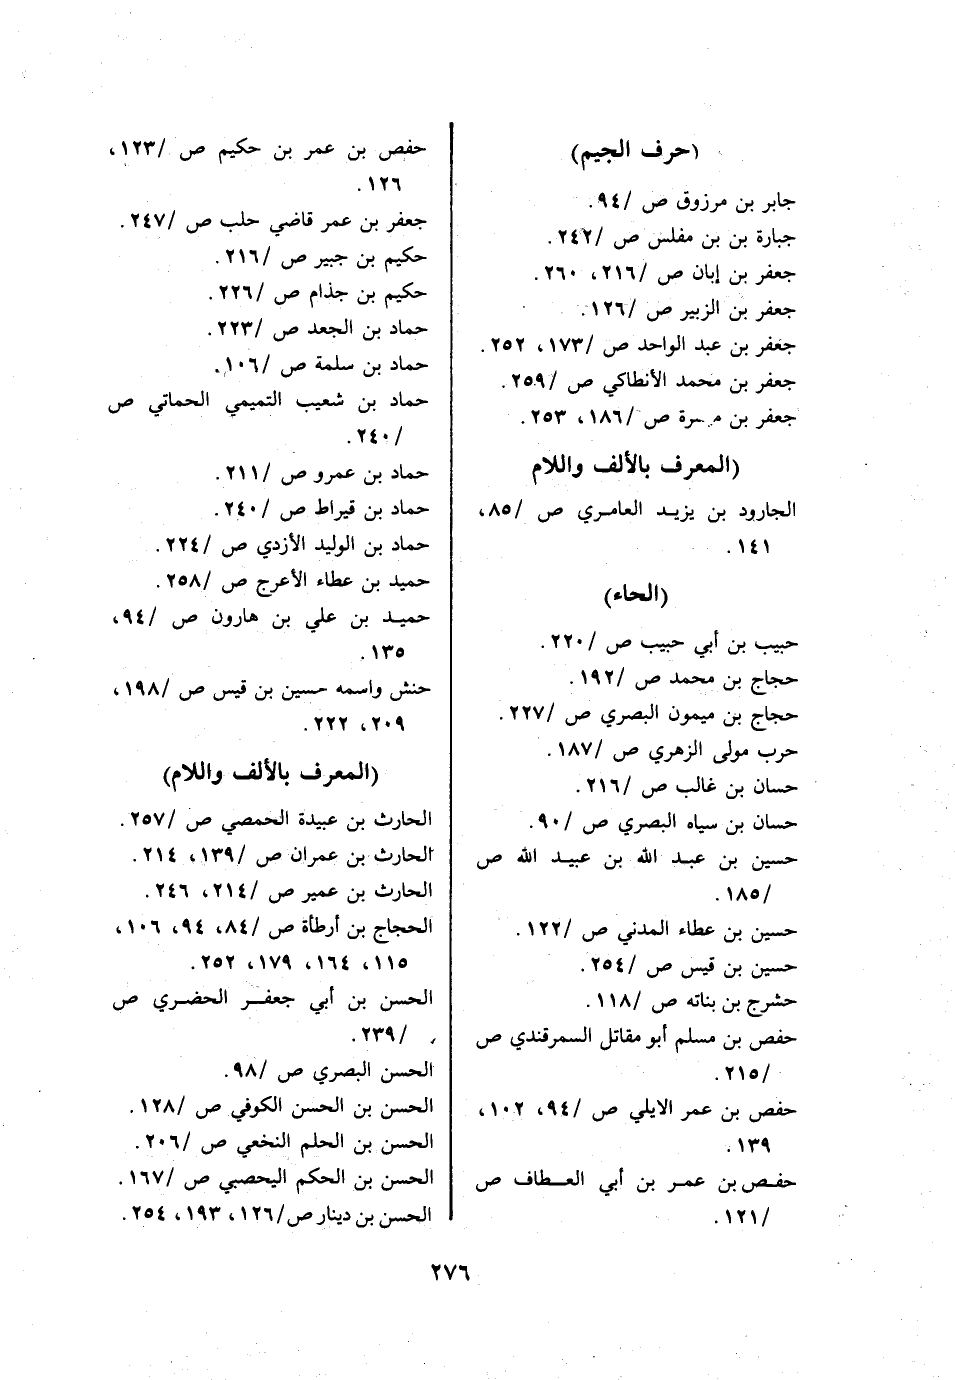 (حرف الجيم)
جابر بن مرزوق ص /٩٤.
جبارة بن بن مفلس ص /٢٤٢.
جعفر بن إبان ص /٢١٦، ٢٦٠.
جعفر بن الزبير ص /١٢٦.
جعفر بن عبد الواحد ص /١٧٣، ٢٥٢.
جعفر بن محمد الأنطاكي ص /٢٥٩.
جعفر بن ص /١٨٦، ٢٥٣.
(المعرف بالألف واللام
الجارود بن يزيد العامري ص /٨٥،
١٤١.
(الحاء)
حبيب بن أبي حبيب ص /٢٢٠.
حجاج بن محمد ص /١٩٢.
حجاج بن ميمون البصري ص /٢٢٧.
حرب مولى الزهري ص /١٨٧.
حسان بن غالب ص /٢١٦.
حسان بن سياه البصري ص /٩٠.
حسين بن عبد الله بن عبيد الله ص
/١٨٥.
حسين بن عطاء المدني ص /١٢٢.
حسين بن قيس ص /٢٥٤.
حشرج بن بناته ص /١١٨.
حفص بن مسلم أبو مقاتل السمرقندي ص
/٢١٥.
حفص بن عمر الايلي ص /٩٤، ١٠٢،
١٣٩.
حفص بن عمر بن أبي العطاف ص
/١٢١.
حفص بن عمر بن حكيم ص /١٢٣،
١٢٦.
جعفر بن عمر قاضي حلب ص /٢٤٧.
حكيم بن جبير ص /٢١٦.
حكيم بن جذام ص /٢٢٦.
حماد بن الجعد ص /٢٢٣.
حماد بن سلمة ص /١٠٦.
حماد بن شعيب التميمي الحماتي ص
/٢٤٠.
حماد بن عمرو ص /٢١١.
حماد بن قيراط ص /٢٤٠.
حماد بن الوليد الأزدي ص /٢٢٤.
حميد بن عطاء الأعرج ص /٢٥٨.
حميد بن علي بن هارون ص /٩٤،
١٣٥.
حنش واسمه حسين بن قيس ص /١٩٨،
٢٠٩، ٢٢٢.
(المعرف بالألف واللام)
الحارث بن عبيدة الحمصي ص /٢٥٧.
الحارث بن عمران ص /١٣٩، ٢١٤.
الحارث بن عمير ص /٢١٤، ٢٤٦.
الحجاج بن أرطأة ص /٨٤، ٩٤، ١٠٦،
١١٥، ١٦٤، ١٧٩، ٢٥٢.
الحسن بن أبي جعفر الحضري ص
/٢٣٩.
الحسن البصري ص /٩٨.
الحسن بن الحسن الكوفي ص /١٢٨.
الحسن بن الحلم النخعي ص /٢٠٦.
الحسن بن الحكم اليحصبي ص /١٦٧.
الحسن بن دينار ص/١٢٦، ١٩٣، ٢٥٤.
٢٧٦